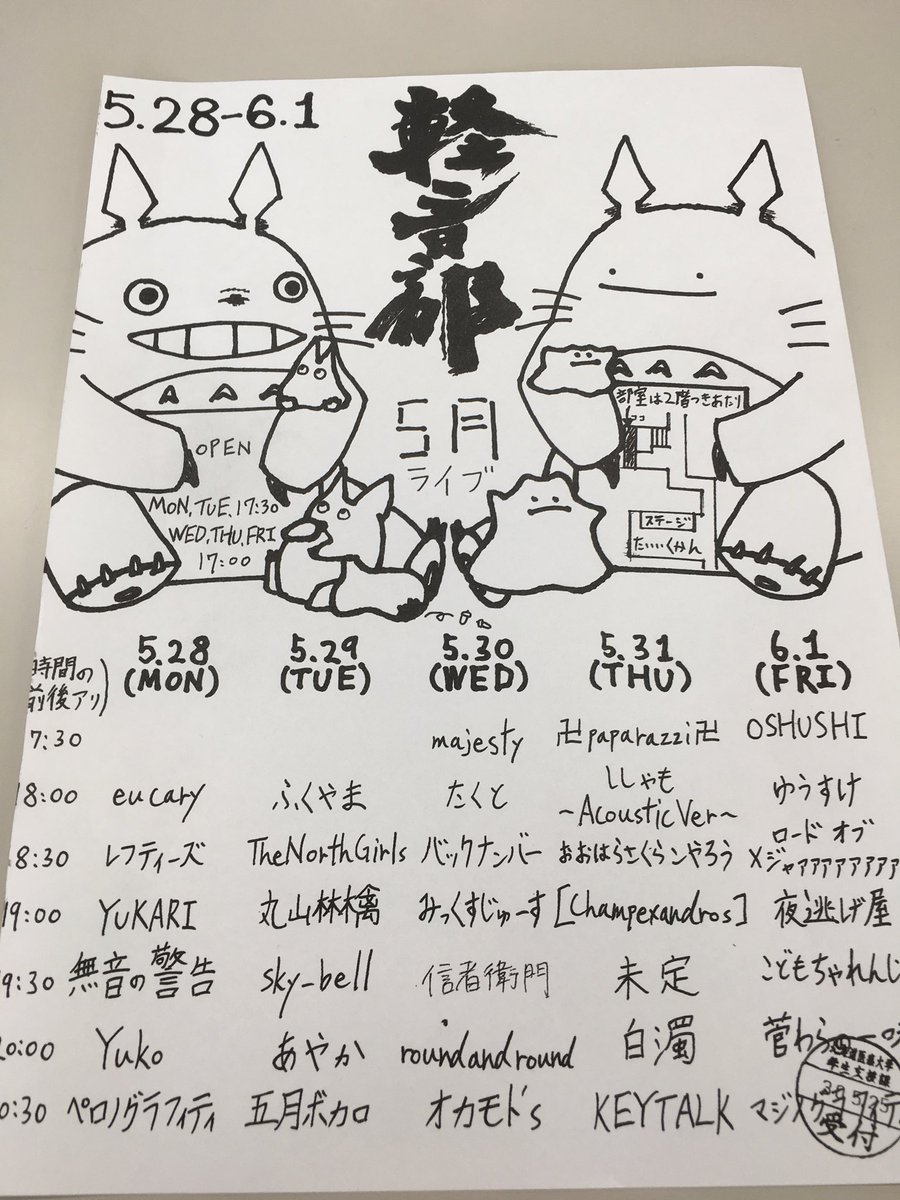 5.28-6.1
軽音部
5月
ライブ
OPEN
MON,TUE,17:30
WED,THU,FRI
17:00
部室は2階つきあたり
ココ
ステージ
たいいくかん
時間の
前後アリ)
5.28 5.29 5.30 5.31 6.1
(MON) (TUE) (WED) (THU) (FRI)
7:30 majesty 卍paparazzi卍 OSHUSHI
8:00 eucary ふくやま たくと ししゃも ゆうすけ
~AcousticVer~
8:30 レフティーズ TheNorthGirls バックナンバー おおはらさくらこンやろう ロード オブ
メジャァァァァァァァァ
19:00 YUKARI 丸山林檎 みっくすじゅーす [Champexandros]夜逃げ屋
9:30 無音の警告 sky_bell 信者衛門 未定 こどもちゃれんじ
0:00 Yuko あやか roundandround 白濁 菅わら
0:30 ペロノグラフィティ 五月ボカロ オカモト's KEYTALK マジスカ
学生支援課
受付